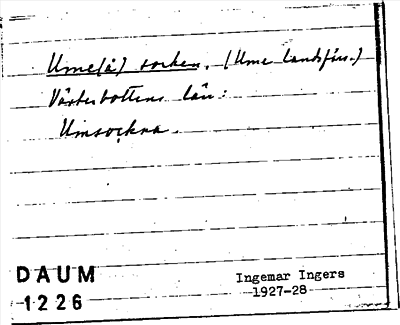 Ume(å) socken. (Ume landsförs.)
Västerbottens län:
Umsockna.
DAUM
1226
Ingemar Ingers
1927-28